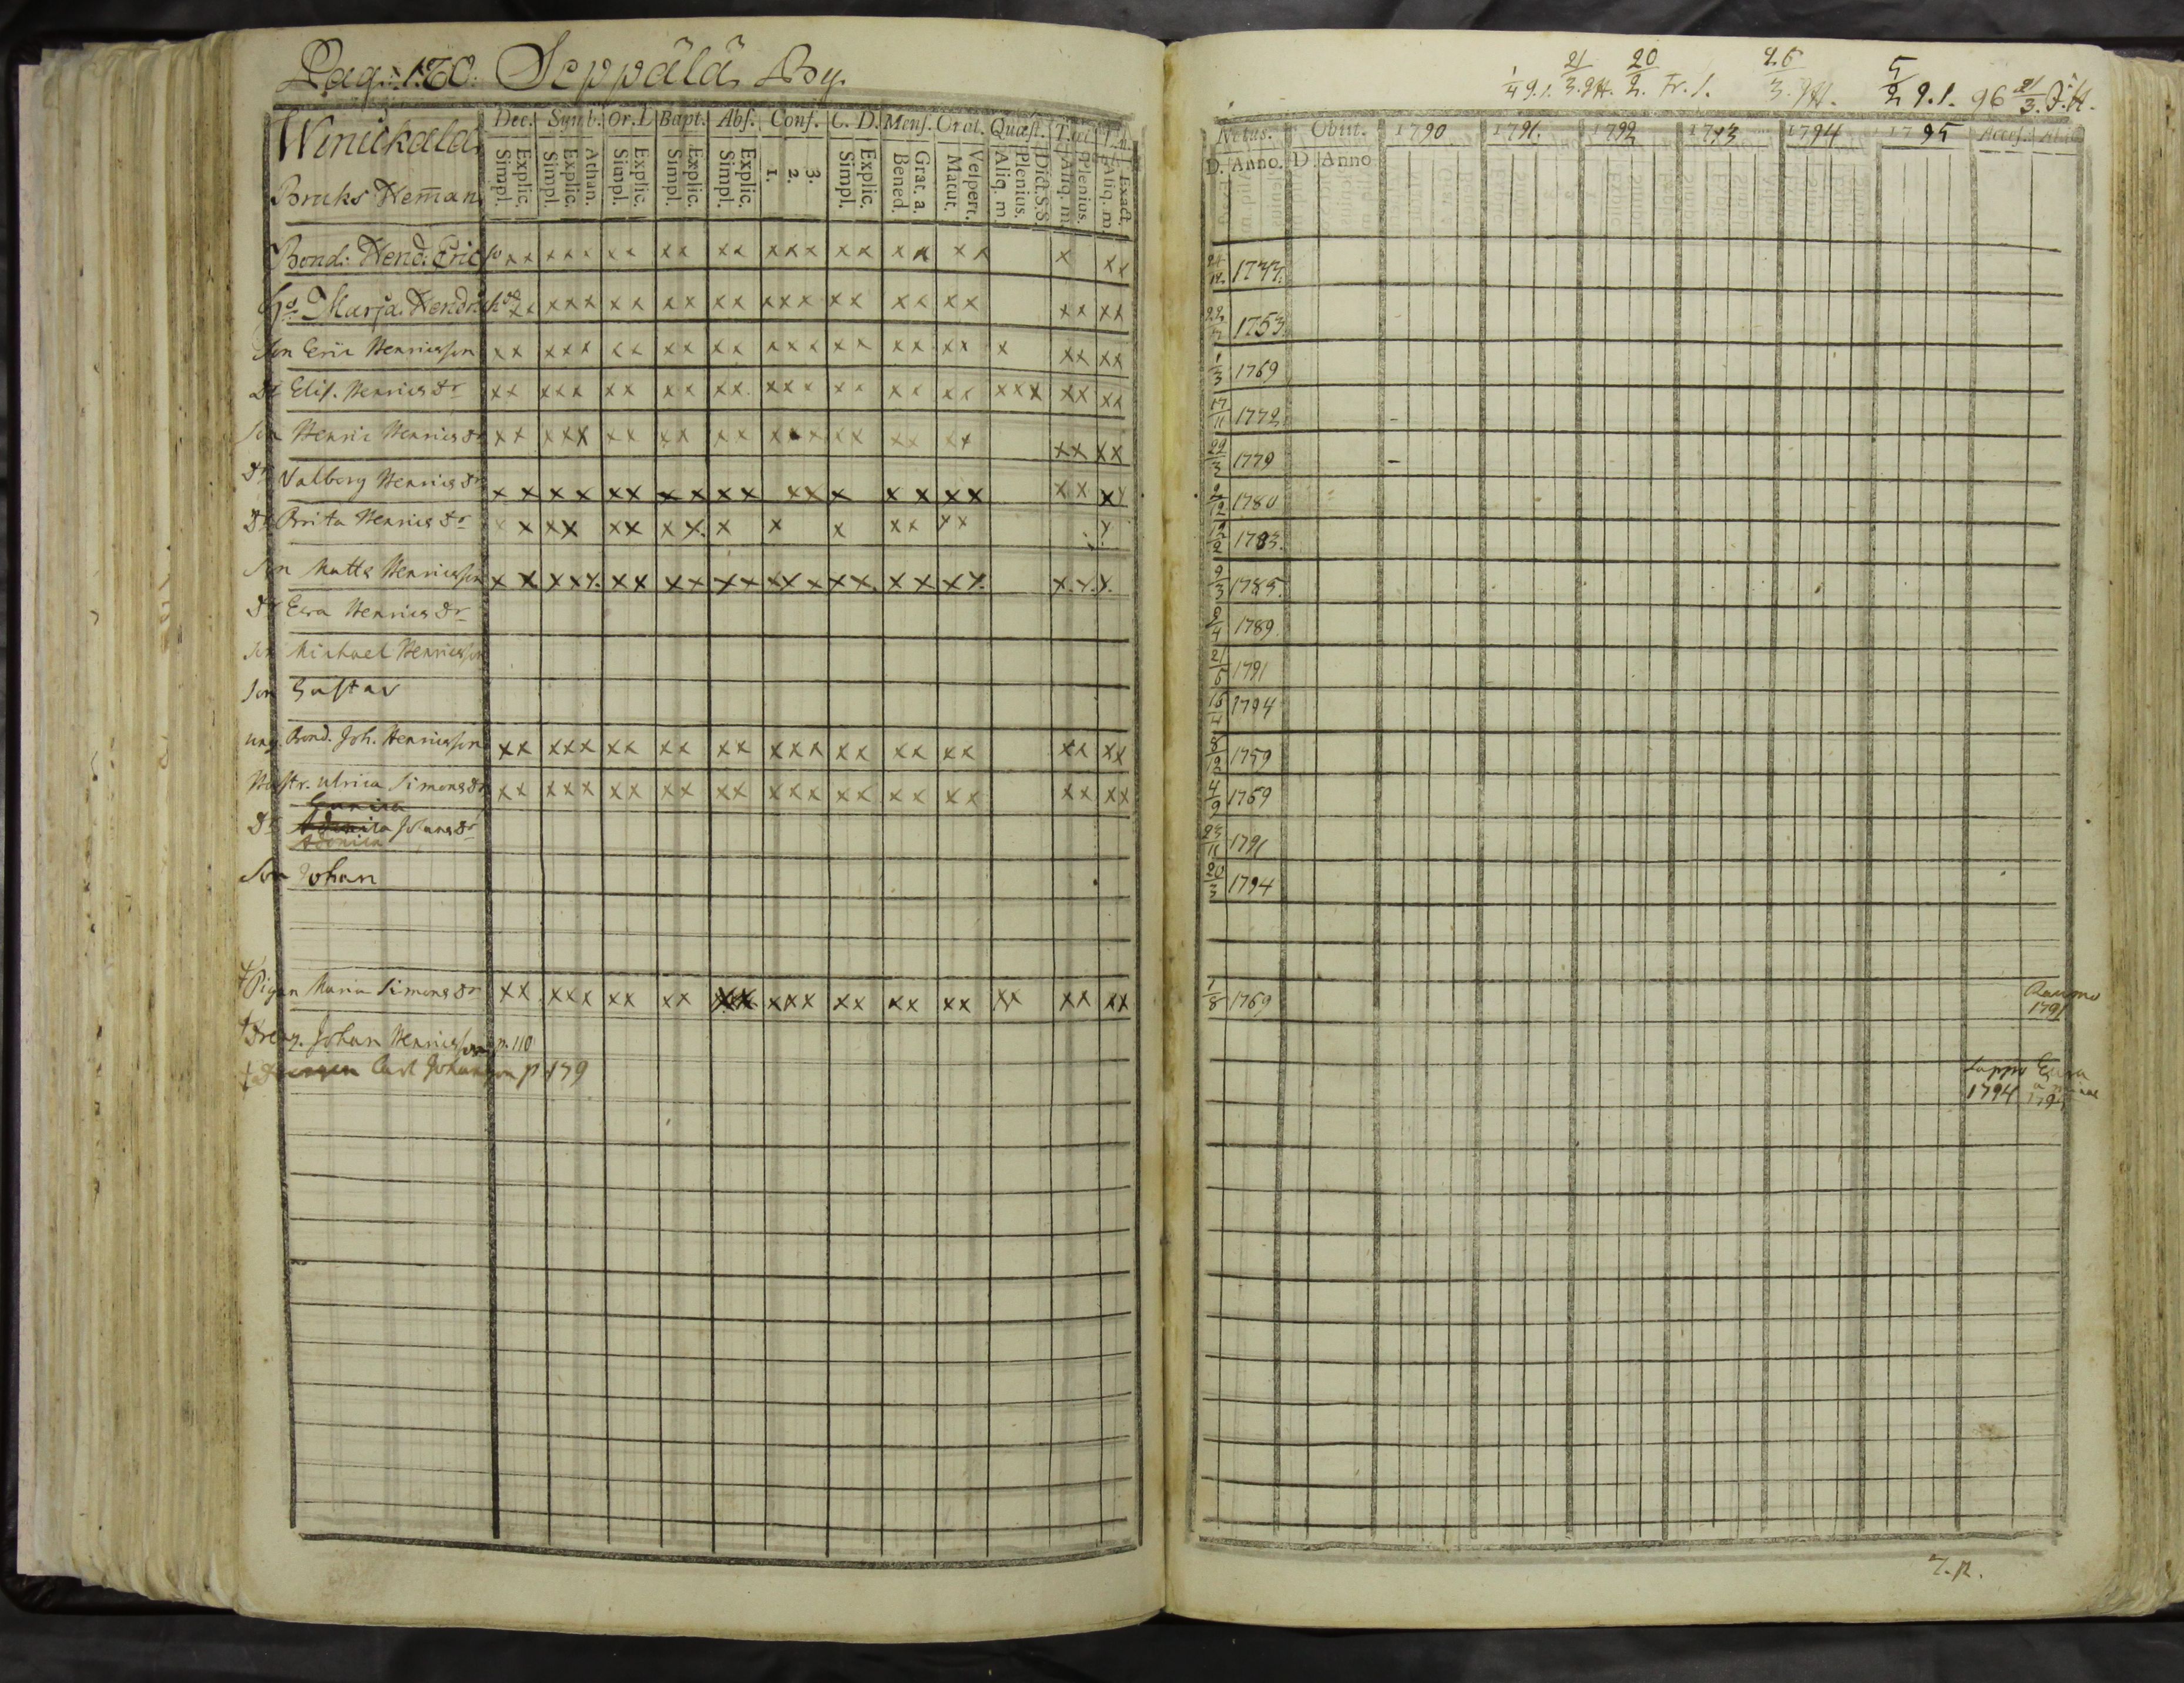 Pag: 180. Seppälä By.
Winickala
Bruks Heman
Dec. Symb. Or.D Bapt. Abs. Conf. C. D. Mens. Orat. Quæst.
Simpl. Explic. Simpl. Explic. Athan. Simpl. Explic. Simpl. Explic. Simpl. Explic. 1. 2. 3. Simpl. Explic. Bened. Grat. a. Matut. Vespert. Aliq. m. Plenius. Dict. S.S. Aliq. m. Plenius. Aliq. m. Exact.
Bond: Hend: Eric so x x x x x x x x x x x x x x x x x x x x x x x
Ho Marja Hendr: x x x x x x x x x x x x x x x x x x x x x x x x
Son Eric Henricsson x x x x x x x x x x x x x x x x x x x x x x x x x
Dr Elis. Henrics dr x x x x x x x x x x x x x x x x x x x x x x x x x x x
Son Henric Henrics x x x x x x x x x x x x x x x x x x x x x x x x
Dr Valborg Henrics dr x x x x x x x x x x x x x x x x x x x x x x
Dr Brita Henrics dr x x x x x x x x x x x x x x x x
Son Matts Henricsson x x x x x x x x x x x x x x x x x x x x x x x x
Dr Eva Henrics dr
Son Michael Henricsson
Son Gustav
ung. Bond. Joh. Henricsson x x x x x x x x x x x x x x x x x x x x x x x x
Hustr. Ulrica Simons dr x x x x x x x x x x x x x x x x x x x x x x x x
Dr Johans dr
Son Johan
Pigan Maria Simons dr x x x x x x x x x x x x x x x x x x x x x x x x x x
Dreng. Johan Henricsson p. 110
Carl Johansson p 179
1/4 J.I. 21/3. JH. 20/2. Fr. I. 26/3. JH. 5/2 J.I. 96 21/3. J.H.
Natus. Obiit. 1790 1791. 1792 1793 1794 1795
D. Anno. D. Anno
1753
1/3 1769
17/11 1772
29/3 1779
1780
12/2 1783.
9/3 1785.
1789
1791
16/4 1794
8/12 1759
4/9 1769
23/11 1791
20/3 1794
1/8 1769 Raumo 1791
Lappo 1794